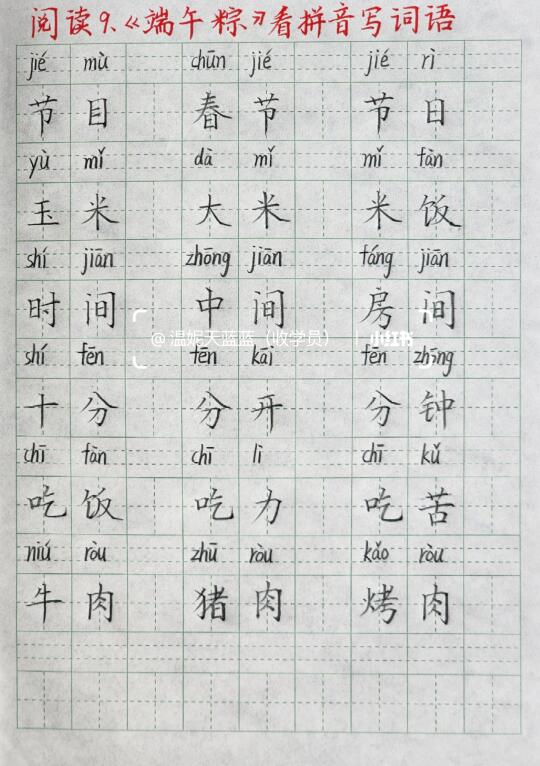 阅读9、《端午粽》看拼音写词语
jié mù chūn jié jié rì
节目 春节 节日
yù mǐ dà mǐ mǐ fàn
玉米 大米 米饭
shí jiān zhōng jiān fáng jiān
时间 中间 房间
@温妮天蓝蓝（收学员） 小红书
shí fēn fēn kāi fēn zhōng
十分 分开 分钟
chī fàn chī lì chī kǔ
吃饭 吃力 吃苦
niú ròu zhū ròu kǎo ròu
牛肉 猪肉 烤肉